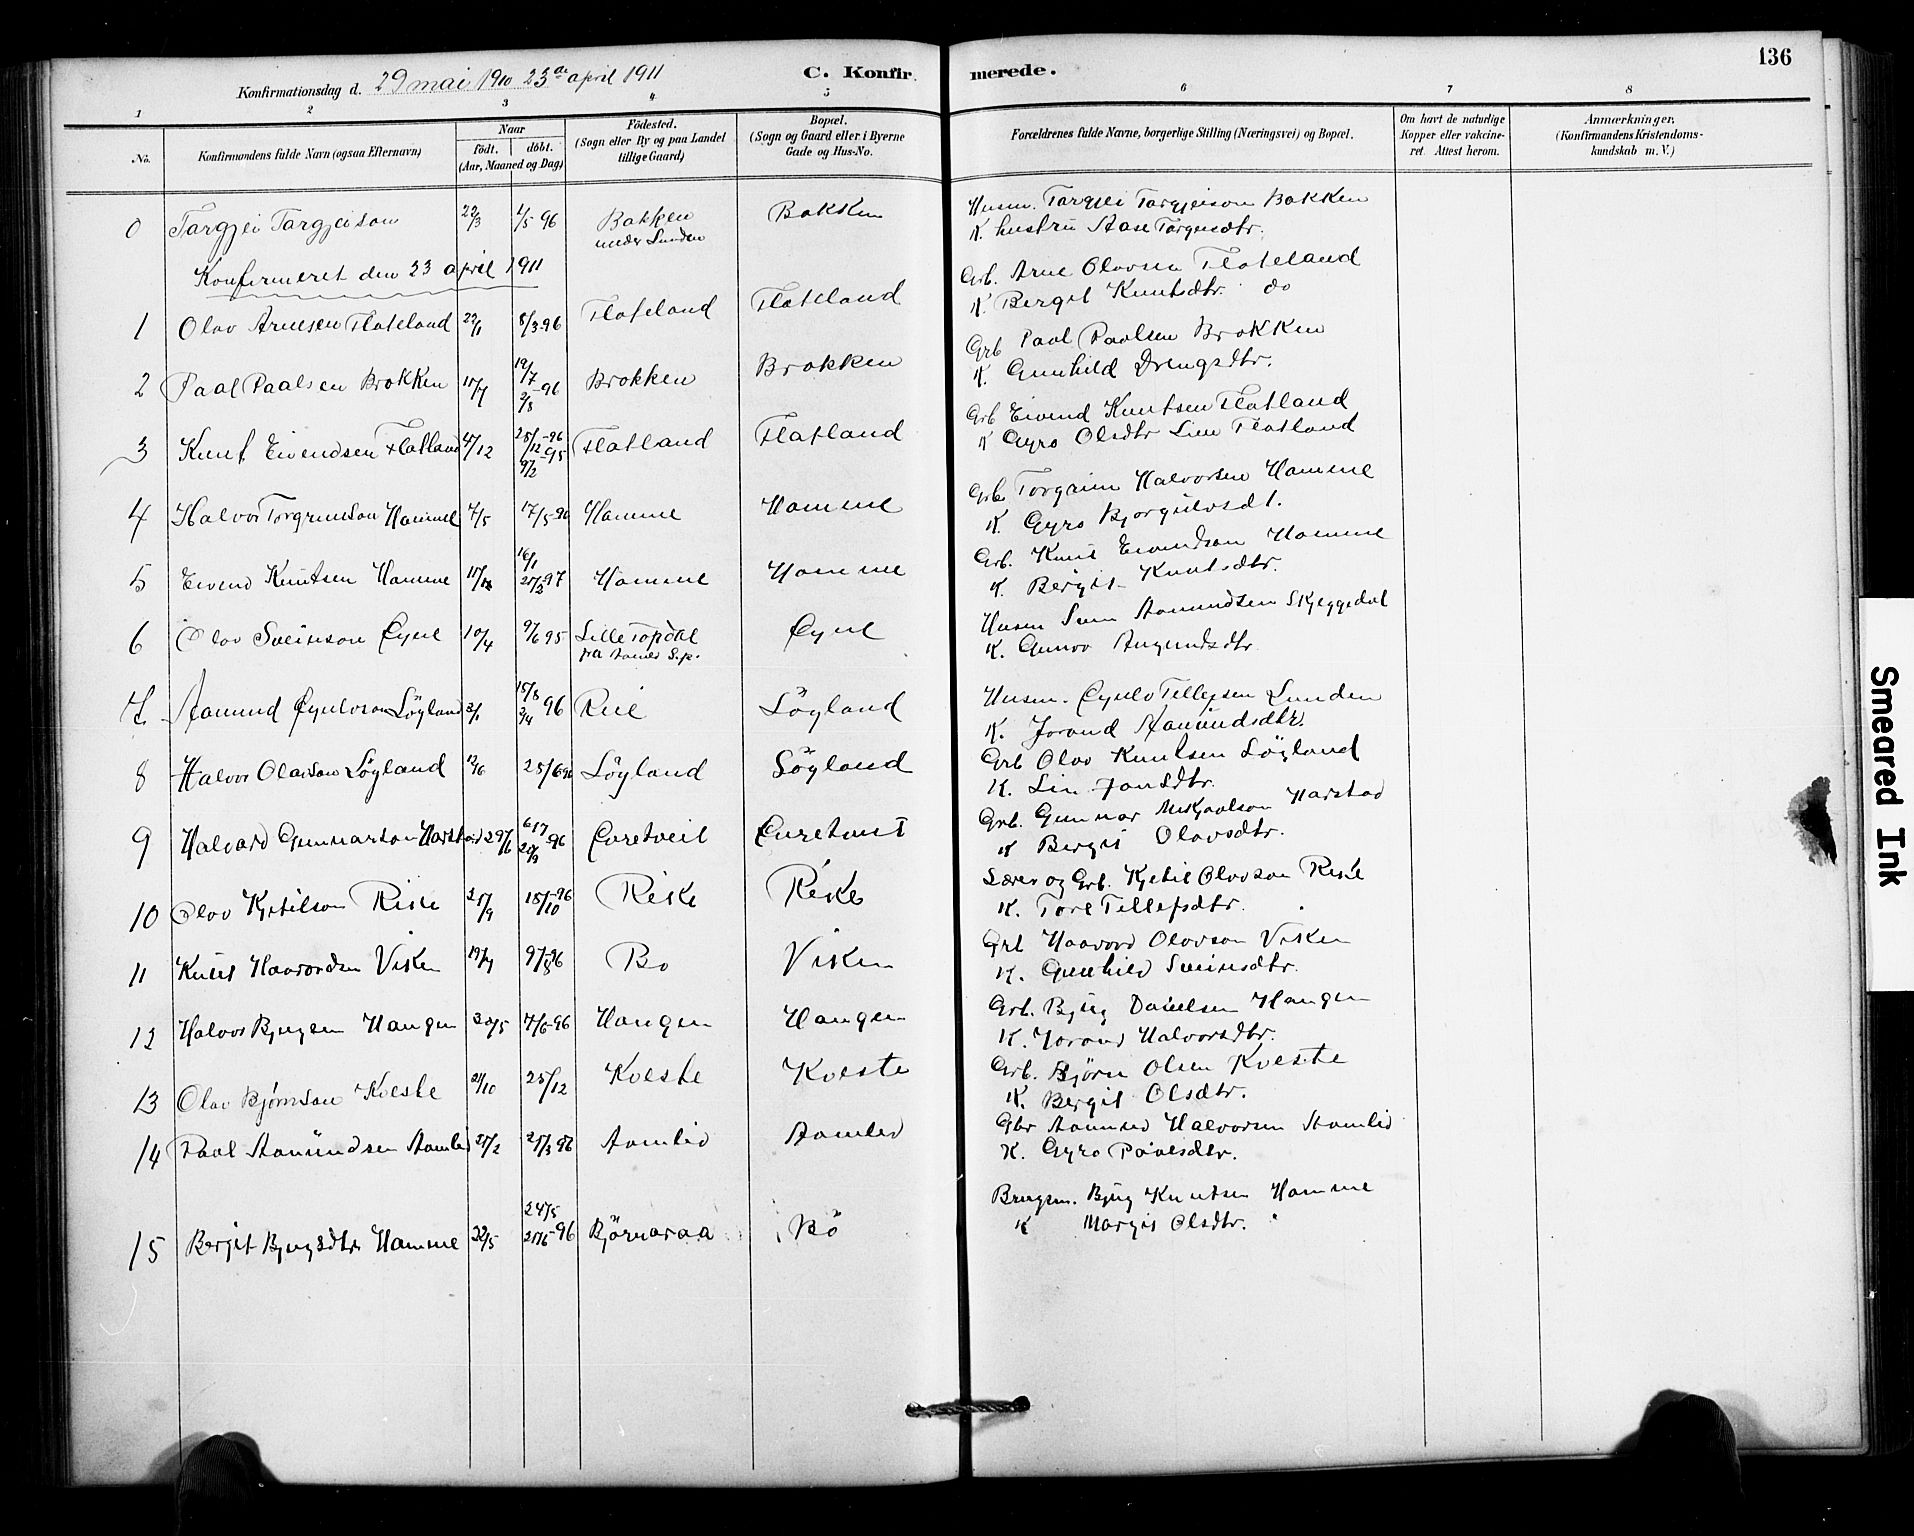 136
Konfirmationsdag d. 29 mai 1910 23de april 1911 C. Konfirmerede.
1 2 3 4 5 6 7 8
No. Konfirmandens fulde Navn (ogsaa Efternavn) Naar født. døbt. (Aar, Maaned og Dag) Fødested. (Sogn eller By og paa Landet tillige Gaard) Bopæl. (Sogn og Gaard eller i Byerne Gade og Hus-No. Forældrenes fulde Navne, borgerlige Stilling (Næringsvei) og Bopæl. Om havt de naturlige Kopper eller vakcineret. Attest herom. Anmærkninger. (Konfirmandens Kristendomskundskab m. V.)
0 Targjei Targjeison 22/3 1/5 96 Bakken under Lunden Bakken Husm. Targjei Targjeison Bakken
K. hustru Aase Targeisdtr.
Konfirmeret den 23 april 1911
1 Olav Arnesen Flateland 22/1 8/3 96 Flateland Flateland Grb. Arne Olavsen Flateland
K Bergit Knutsdtr. do
2 Paal Paalsen Brokken 15/7 19/7 2/8 96 Brokken Brokken Grb Paal Paalsen Brokken
K. Gunhild Drengsdtr.
3 Knut Eivendsen Flatland 4/12 25/12 96 9/2 95 Flatland Flatland Grb Eivend Knutsen Flatland
K Gyro Olsdtr Lien Flatland
4 Halvor Torgrimson Hamme 7/5 17/5 96 Hamme Hamme Grb Torgrim Halvorsen Hamme
K. Gyro Bjorgulvsdt.
5 Eivend Knutsen Hamme 16/1 25/2 97 Hamme Hamme Grb. Knut Eivendson Hamme
K. Bergit Knutsdtr.
6 Olav Sveinson 10/4 9/6 95 Lille Topdal fra Aamli S.p. Husm Svein Aamundsen Skjeggedal
K. Gunvor
7 Aamund Løyland 2/1 15/8 2/4 96 Løyland Husm. Tellefsen Lunden
K. Jorand Aamundsdtr.
8 Halvor Olavson Løyland 12/6 25/6 96 Løyland Løyland Grb Olav Knutsen Løyland
K. Liv Jonsdtr.
9 Halvard Gunnarson Harstad 29/6 6/7 20/9 96 Grb. Gunnar Harstad
K Bergit Olavsdtr.
10 Olav Kjetilson Riske 25/9 18/10 96 Riske Riske Lærer og Grb. Kjetil Olavson Riske
K. Tore Tellefsdtr.
11 Knut Haavardsen Viken 19/7 9/8 96 Bø Viken Grb Haavard Olavson Viken
K. Gunhild Sveinsdtr.
12 Halvor Bjugsen Haugen 30/5 7/6 96 Haugen Haugen Grb. Bjug Danielsen Haugen
K. Jorand Halvorsdtr.
13 Olav Bjørnson Kveste 21/10 25/12 Kveste Kveste Grb. Bjørn Olsen Kveste
K. Bergit Olsdtr.
14 Paal Aamundsen Aamlid 25/2 25/3 96 Aamlid Aamlid Gbr Aamund Halvorsen Aamlid
K. Gyro Paalsdtr.
15 Bergit Bjugsdtr Hamme 22/5 24/5 21/6 96 Bjørnaraa Bø Brugsm. Bjug Knutsen Hamme
K Margit Olsdtr.
Smeared Ink